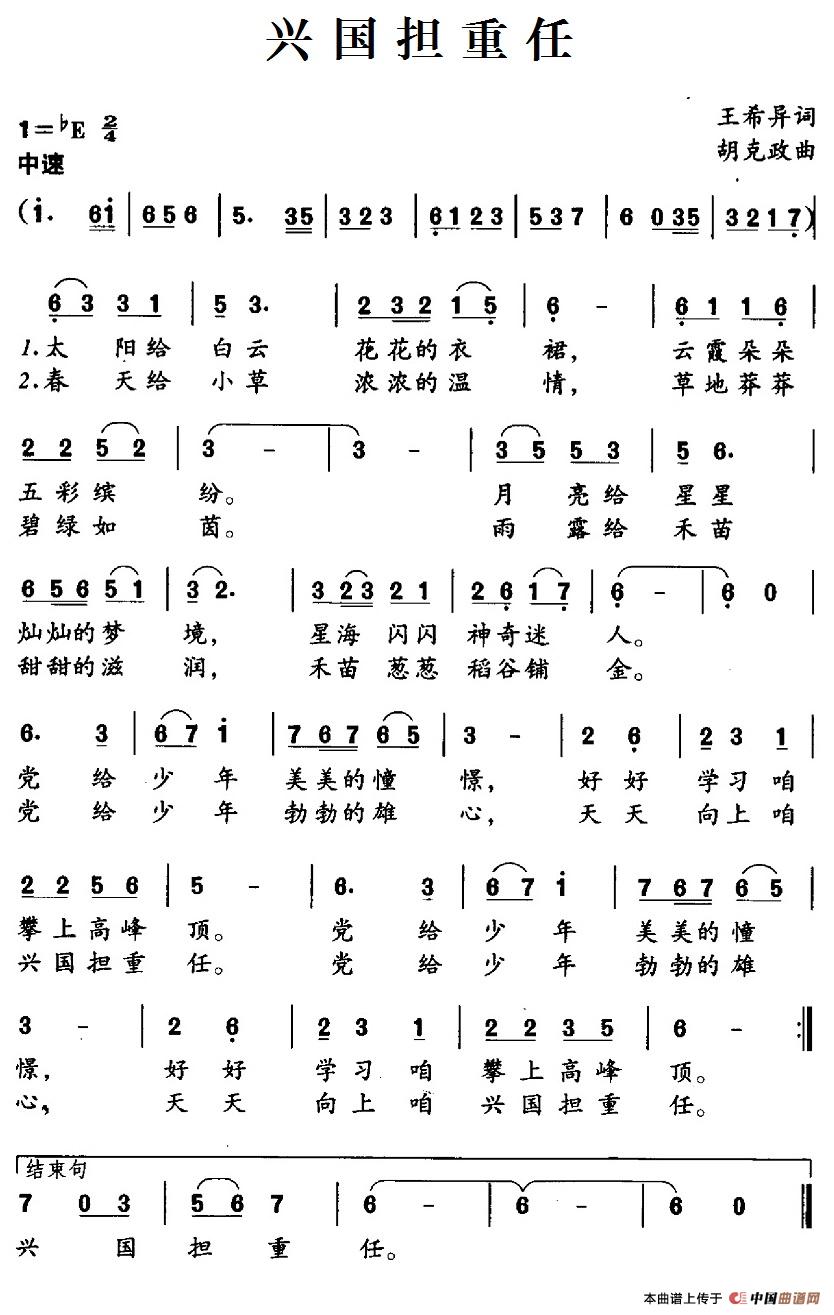 兴国担重任
1=♭E 2/4
王希异词
中速
胡克政曲
(i. 6i | 656 | 5. 35 | 323 | 6123 | 537 | 6 035 | 3217)
6 3 3 1 | 5 3. | 2 32 1 5 | 6 - | 6 1 1 6
1.太 阳给 白云 花花的衣 裙, 云霞朵朵
2.春 天给 小草 浓浓的温 情, 草地莽莽
2 2 5 2 | 3 - | 3 - | 3 5 5 3 | 5 6.
五彩缤 纷。 月 亮给 星星
碧绿如 茵。 雨 露给 禾苗
6 56 5 1 | 3 2. | 3 23 2 1 | 2 6 1 7 | 6 - | 6 0
灿灿的梦 境, 星海闪闪 神奇迷 人。
甜甜的滋 润, 禾苗葱葱 稻谷铺 金。
6. 3 | 6 7 i | 7 67 6 5 | 3 - | 2 6 | 2 3 1
党 给 少 年 美美的憧 憬, 好好 学习咱
党 给 少 年 勃勃的雄 心, 天天 向上咱
2 2 5 6 | 5 - | 6. 3 | 6 7 i | 7 67 6 5
攀上高峰 顶。 党 给 少 年 美美的憧
兴国担重 任。 党 给 少 年 勃勃的雄
3 - | 2 6 | 2 3 1 | 2 2 3 5 | 6 - :||
憬, 好好 学习 咱 攀上高峰 顶。
心, 天天 向上 咱 兴国担重 任。
结束句
7 0 3 | 5 6 7 | 6 - | 6 - | 6 0 ||
兴 国 担 重 任。
本曲谱上传于 中国曲谱网